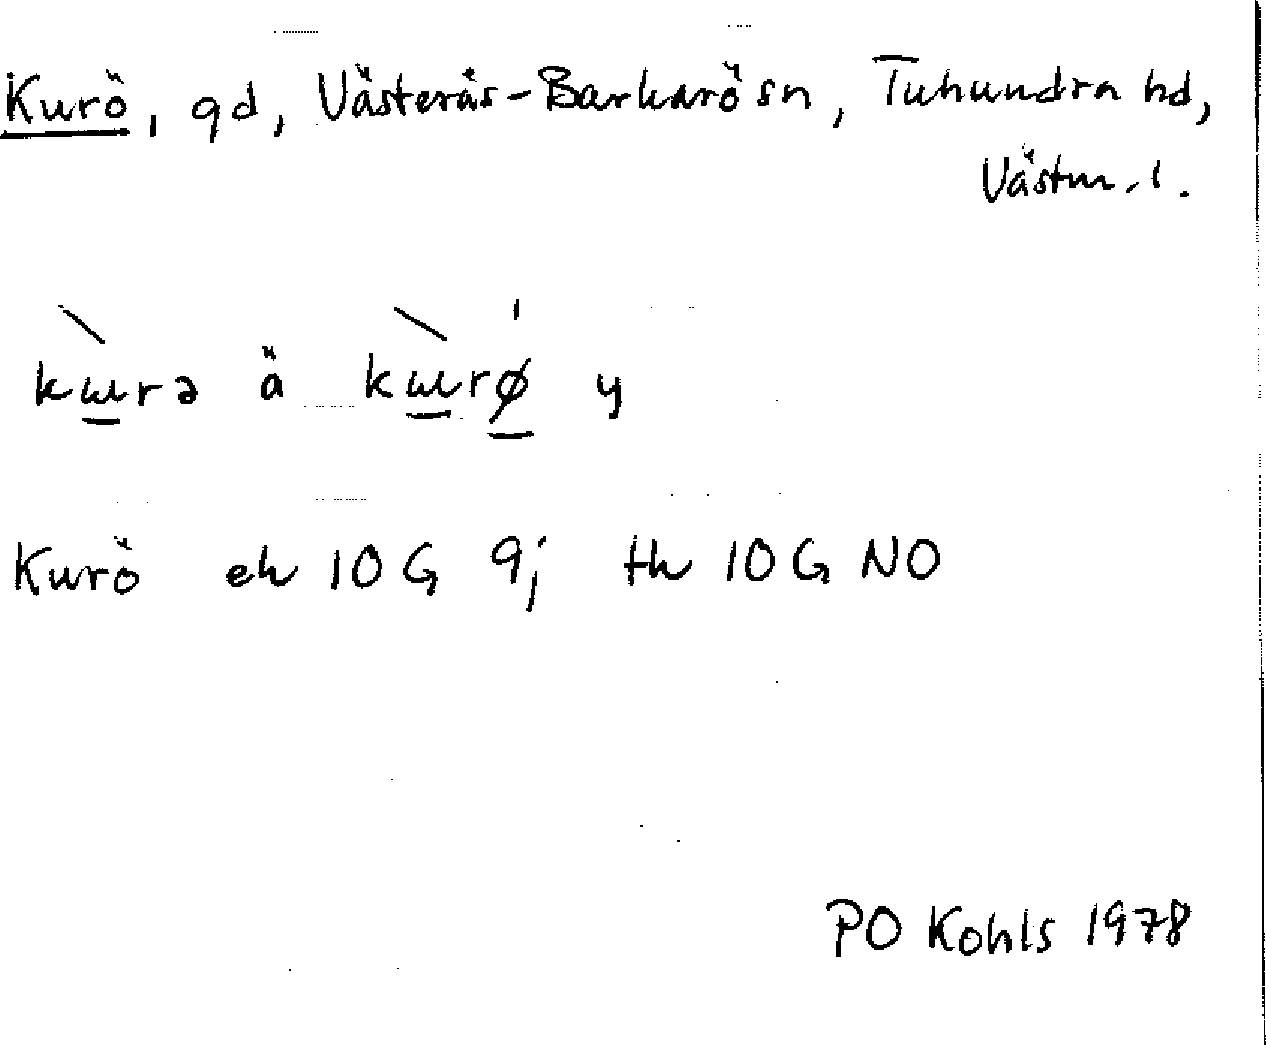 Kurö, gd, Västerås-Barkarö sn, Tuhundra hd,
Västm. l.
kɯrə ä kɯrø y
Kurö ek 10 G 9; tk 10 G NO
PO Kohls 1978